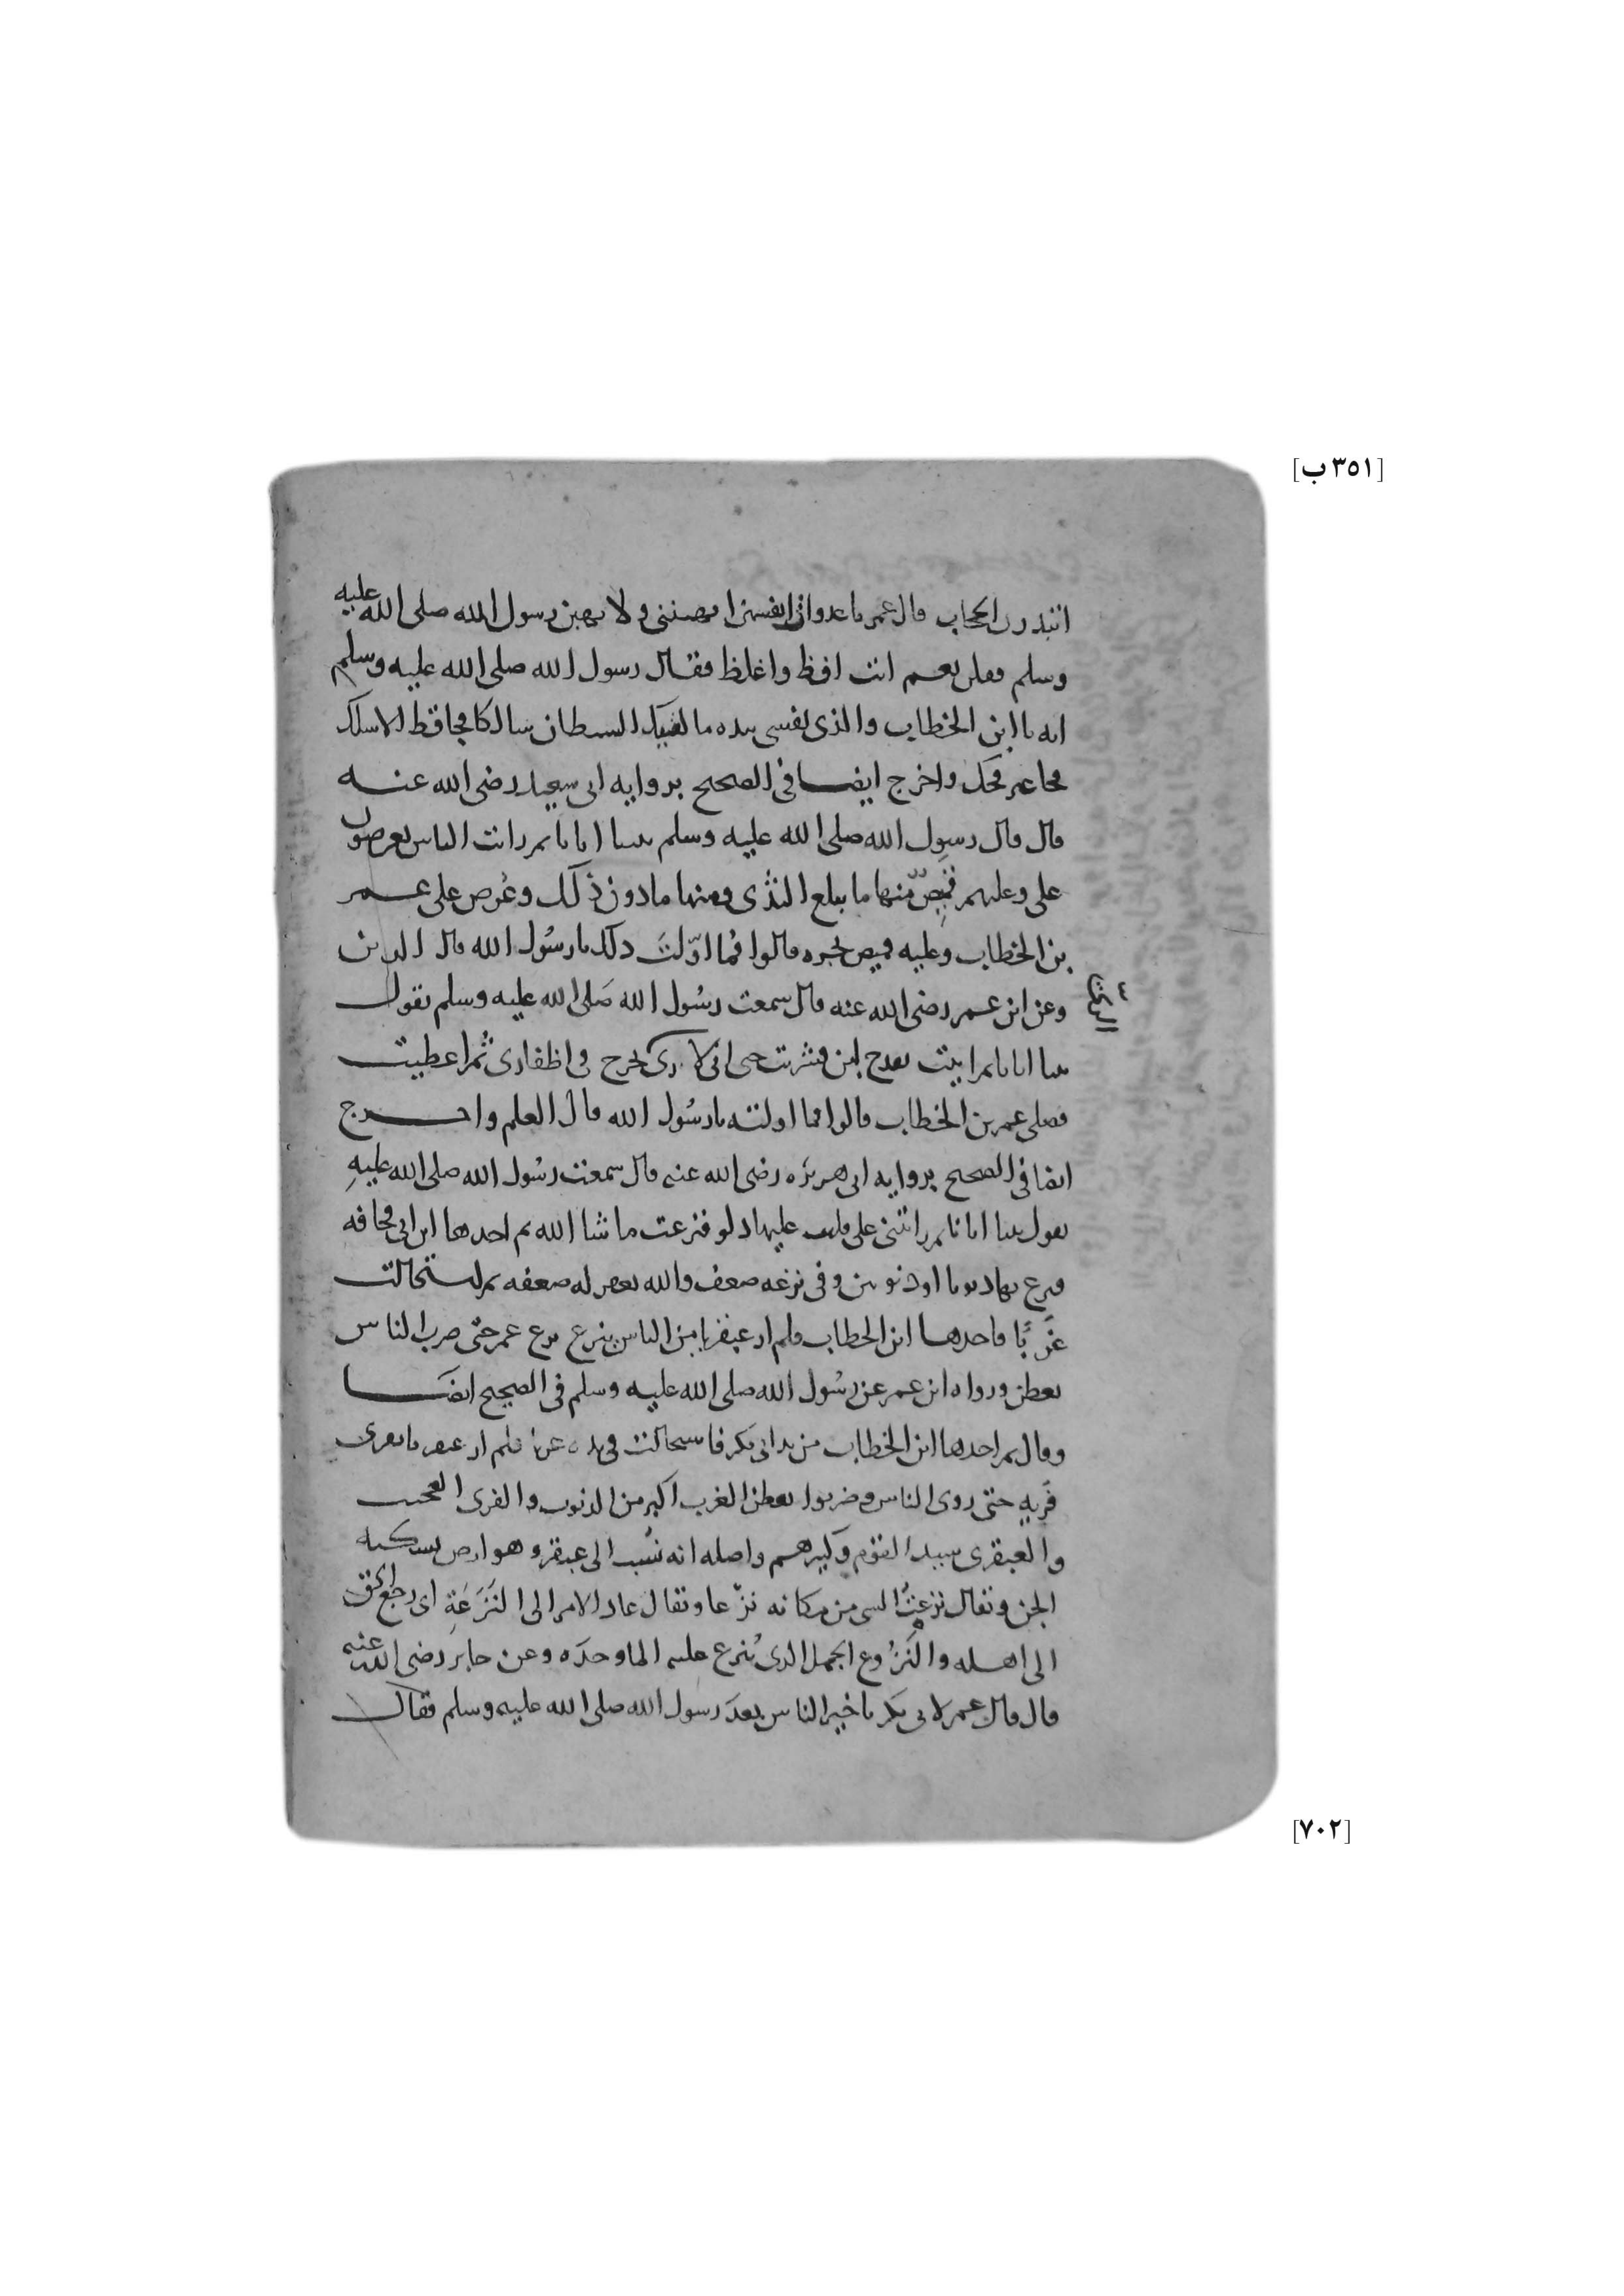 [٣٥١ ب]
ابتدرن الحجاب قال عمر يا عدوات انفسهن اتهبننى ولا تهبن رسول الله صلى الله عليه
وسلم فقلن نعم انت افظ واغلظ فقال رسول الله صلى الله عليه وسلم
ايه يا ابن الخطاب والذى نفسى بيده ما لقيك الشيطان سالكا فجا قط الا سلك
فجا غير فجك واخرج ايضا فى الصحيح بروايه ابى سعيد رضى الله عنه
قال قال رسول الله صلى الله عليه وسلم بينا انا نايم رايت الناس يعرضون
على وعليهم قُمُصٌ منها ما يبلغ الثدى ومنها ما دون ذلك وعُرض على عمر
بن الخطاب وعليه قميص يجره قالوا فما اوّلتَ ذلك يا رسُول الله قال الدين
وعن ابن عمر رضى الله عنه قال سمعت رسُول الله صَلى الله عليه وسلم يقول
بينا انا نايم اتيت بقدح لبن فشربت حتى انى لا رى يخرج فى اظفارى ثُم اعطيت
فضلى عمر بن الخطاب قالوا فما اولته يا رسُول الله قال العلم واخرج
ايضا فى الصحيح بروايه ابى هريره رضى الله عنه قال سمعت رسُول الله صلى الله عليهِ
يقول بينا انا نايم رايتنى على قليب عليها دلو فنزعت ما شا الله ثم اخذها ابن ابى قحافه
فنزع بها ذنوبا او ذنوبين وفى نزعه ضعف والله يغفر له ضعفه ثم استحالت
غَربًا فاخذها ابن الخطاب فلم ار عبقريا من الناس ينزع نزع عمر حتى ضرب الناس
بعطن ورواه ابن عمر عن رسُول الله صلى الله عليه وسلم فى الصحيح ايضَا
وقال ثم اخذها ابن الخطاب من يد ابى بكر فاستحالت فى يده غربا فلم ار عبقريا يفرى
فَريه حتى روى الناس وضربوا بعطن الغرب اكبر من الذنوب والفرى العجب
والعبقرى سيد القوم وكبيرهم واصله انه نُسب الى عبقر وهو ارض يسكنه
الجن ويقال نزعتُ الشى من مكانه نزعا ويقال عاد الامر الى النَزَعَةِ اى رجع الحق
الى اهله والنَزُوع الجمل الذى يُنزع عليه الما وحدَه وعن جابر رضى الله عنه
قال قال عمر لابى بكر يا خير الناس بعدَ رسُول الله صلى الله عليه وسلم فقال
[٧٠٢]